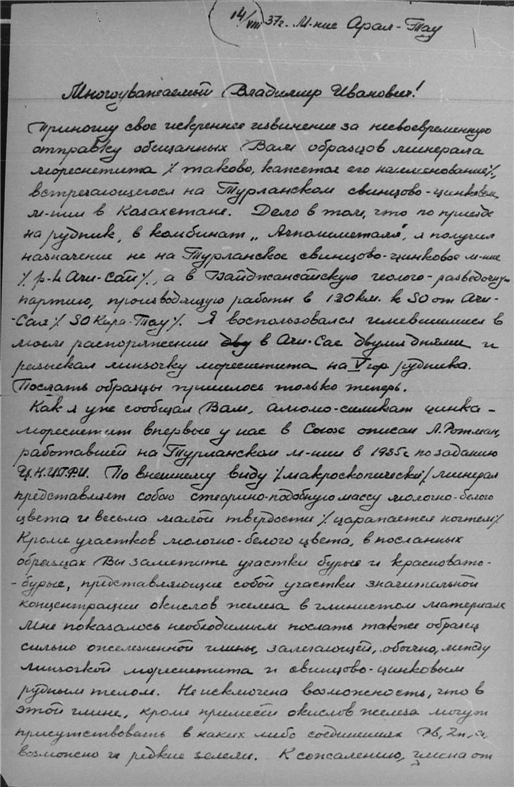 14/VIII 37г. М-ние Арал-Тау
Многоуважаемый Владимир Иванович!
Приношу свое искреннее извинение за несвоевременную
отправку обещанных Вам образцов минерала
мореснетита /таково, кажется его наименование/,
встречающегося на Турланском свинцово-цинковом
м-нии в Казахстане. Дело в том, что по приезде
на рудник, в комбинат „Ачполиметалл", я получил
назначение не на Турланское свинцово-цинковое м-ние
/р-к Ачи-Сай/, а в Байджансайскую геолого-разведочную
партию, производящую работы в 120 км. к SO от Ачи-
Сая / SO Кара-Тау/. Я воспользовался имевшимися в
моем распоряжении дву в Ачи-Сае двумя днями и
разыскал линзочку мореснетита на V гор. рудника.
Послать образцы пришлось только теперь.
Как я уже сообщал Вам, алюмо-силикат цинка -
мореснетит впервые у нас в Союзе описан Л. Ротман,
работавшей на Турланском м-нии в 1935г по заданию
По внешнему виду /макроскопически/ минерал
представляет собою стеарино-подобную массу молочно-белого
цвета и весьма малой твердости /царапается ногтем/
Кроме участков молочно-белого цвета, в посланных
образцах Вы заметите участки бурые и красновато-
-бурые, представляющие собой участки значительной
концентрации окислов железа в глинистом материале
Мне показалось необходимым послать также образец
сильно ожелезненной глины, залегающей, обычно, между
линзочкой мореснетита и свинцово-цинковым
рудным телом. Не исключена возможность, что в
этой глине, кроме примеси окислов железа могут
присутствовать в каких либо соединениях Pb, Zn, а
возможно и редкие земли. К сожалению, глина от